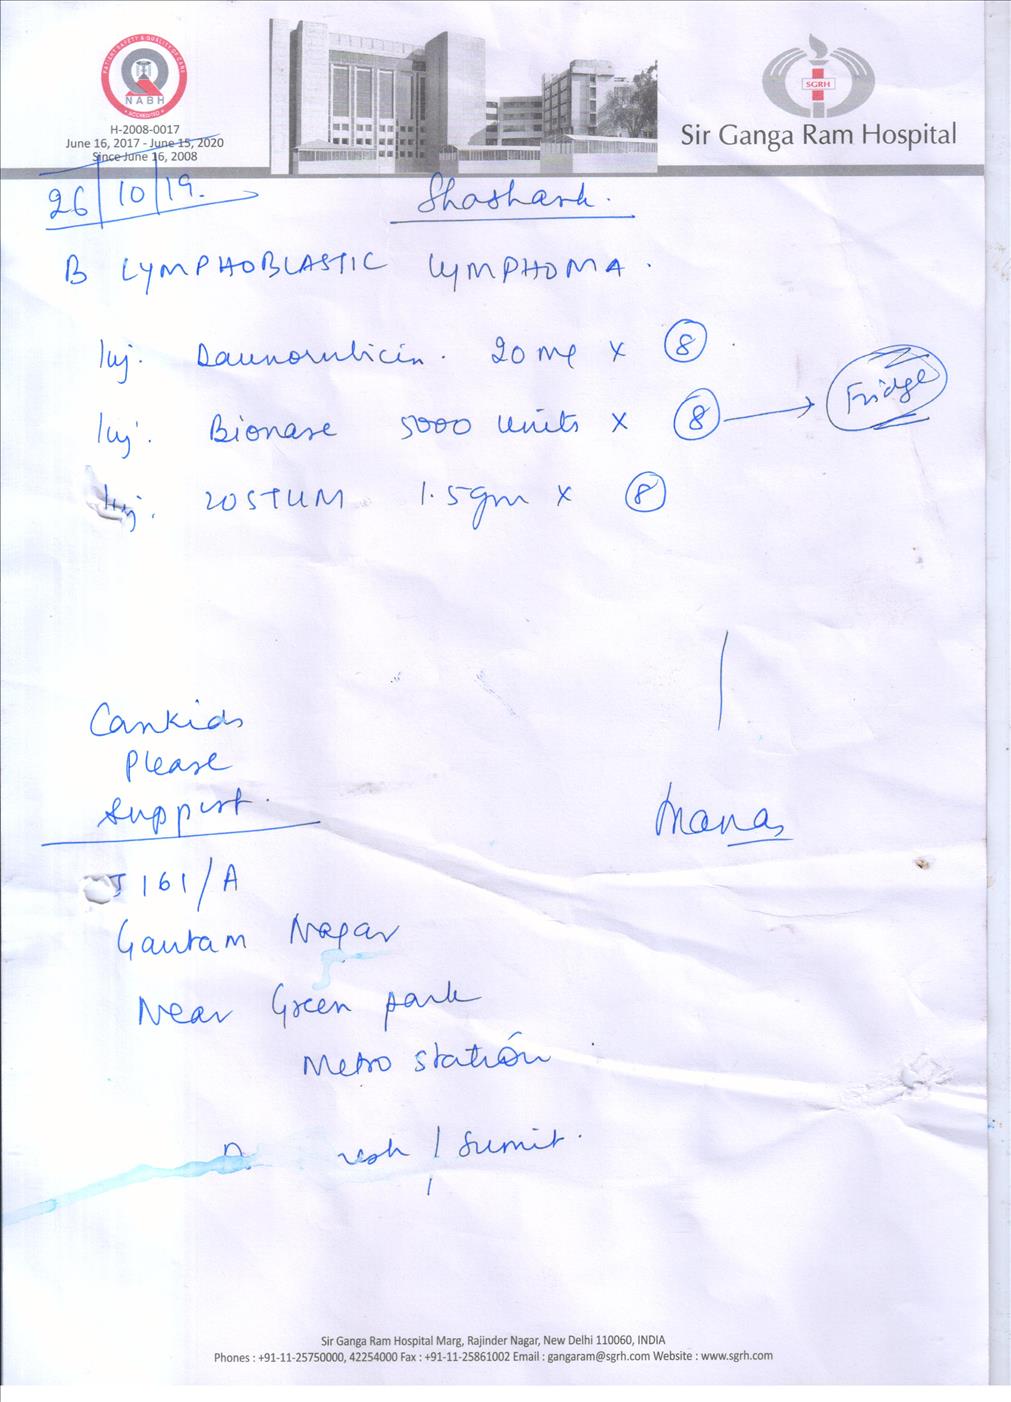 PATIENT SAFETY & QUALITY OF CARE
NABH
ACCREDITED
H-2008-0017
June 16, 2017 - June 15, 2020
Since June 16, 2008
SGRH
Sir Ganga Ram Hospital
26/10/19.
Shashank.
B LYMPHOBLASTIC LYMPHOMA.
Inj. Daunorubicin. 20 mg x 8
Inj. Bionase 5000 Units x 8 → Fridge
Inj. ZOSTUM 1.5gm x 8
Cankids
Please
Support.
Manas
J 161/A
Gautam Nagar
Near Green park
Metro station
/ Sumit.
Sir Ganga Ram Hospital Marg, Rajinder Nagar, New Delhi 110060, INDIA
Phones : +91-11-25750000, 42254000 Fax : +91-11-25861002 Email : gangaram@sgrh.com Website : www.sgrh.com